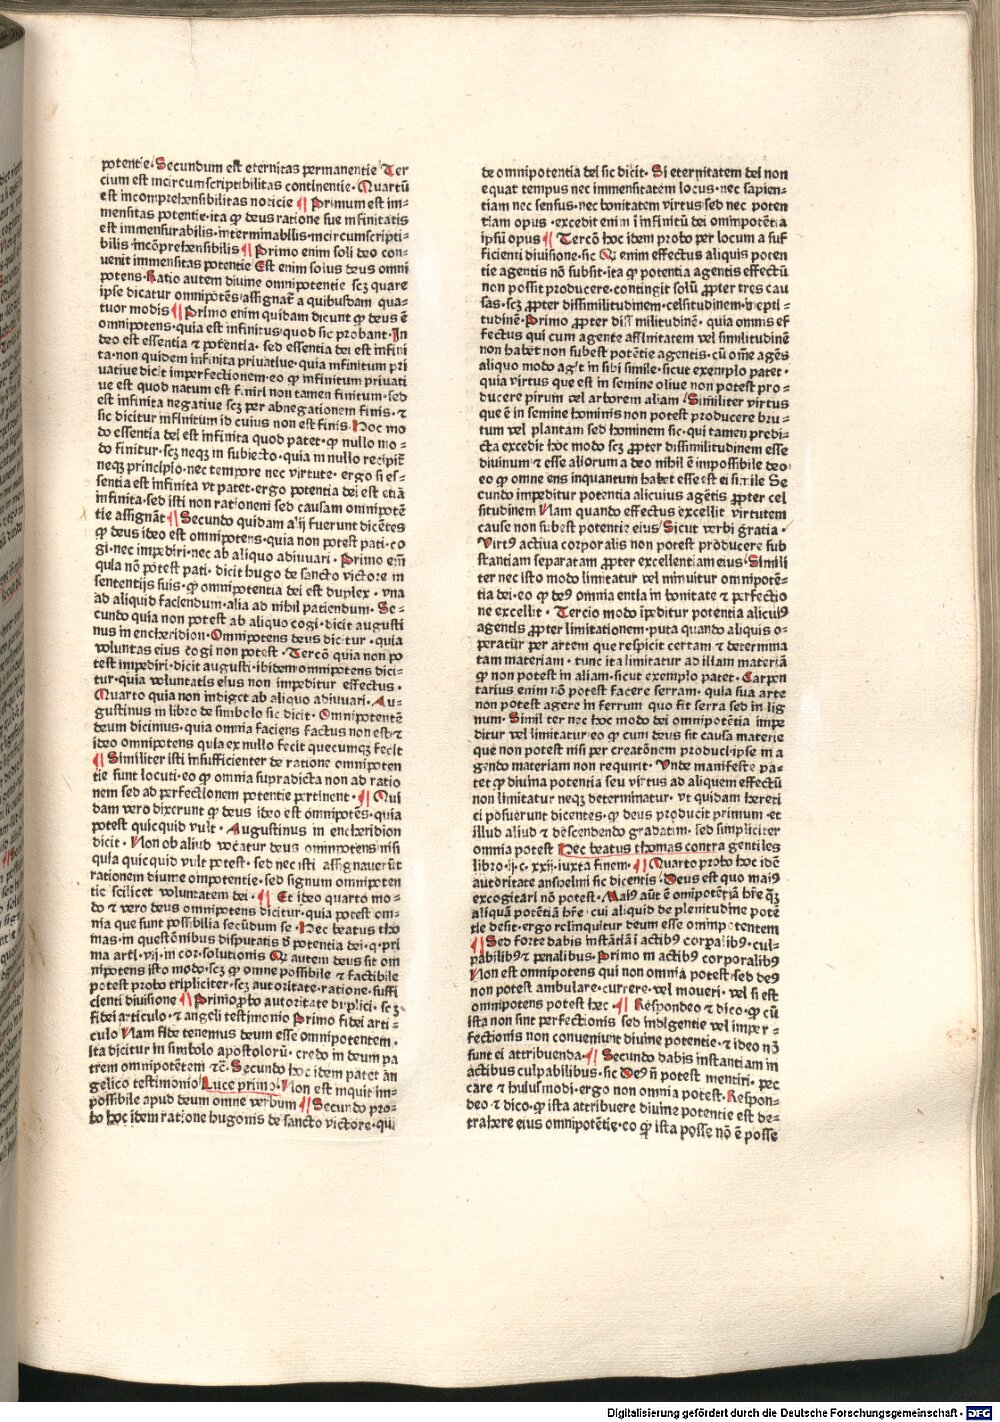 potentie· Secundum est eternitas permanentie Ter
cium est incircumscriptibilitas continentie· Quartũ
est incomprehensibilitas noticie ¶ Primum est im⸗
mensitas potentie·ita ꝙ deus ratione sue infinitatis
est immensurabilis·interminabilis·incircumscripti⸗
bilis·incõprehensibilis ¶ Primo enim soli deo con⸗
uenit immensitas potentie Est enim solus deus omni
potens· Ratio autem diuine omnipotentie scꝫ quare
ipse dicatur omnipotẽs assignat᷑ a quibusdam qua⸗
tuor modis ¶ Primo enim quidam dicunt ꝙ deus ẽ
omnipotens·quia est infinitus·quod sic probant· In
deo est essentia ⁊ potentia· sed essentia dei est infini
ta·non quidem infinita priuatiue·quia infinitum pri
uatiue dicit imperfectionem·eo ꝙ infinitum priuati
ue est quod natum est finiri non tamen finitum·sed
est infinita negatiue scꝫ per abnegationem finis·⁊
sic dicitur infinitum id cuius non est finis· Hoc mo
do essentia dei est infinita quod patet·ꝙ nullo mo⸗
do finitur·scꝫ neqꝫ in subiecto·quia in nullo recipit᷑
neqꝫ principio·nec tempore nec virtute· ergo si es⸗
sentia est infinita vt patet·ergo potentia dei est etiã
infinita·sed isti non rationem sed causam omnipotẽ
tie assignãt ¶ Secundo quidam alij fuerunt dicẽtes
ꝙ deus ideo est omnipotens·quia non potest pati·co
gi·nec impediri·nec ab aliquo adiuuari· Primo em̃
quia nõ potest pati· dicit hugo de sancto victore in
sententijs suis·ꝙ omnipotentia dei est duplex· vna
ad aliquid faciendum·alia ad nihil patiendum· Se⸗
cundo quia non potest ab aliquo cogi·dicit augusti
nus in encheridion· Omnipotens deus dicitur·quia
voluntas eius cogi non potest· Tercõ quia non po
test impediri·dicit augusti·ibidem omnipotens dici⸗
tur·quia voluntatis eius non impeditur effectus·
Quarto quia non indiget ab aliquo adiuuari· Au⸗
gustinus in libro de simbolo sic dicit· Omnipotentẽ
deum dicimus·quia omnia faciens factus non est·⁊
ideo omnipotens quia ex nullo fecit quecumqꝫ fecit
¶ Similiter isti insufficienter de ratione omnipoten
tie sunt locuti·eo ꝙ omnia supradicta non ad ratio
nem sed ad perfectionem potentie pertinent· ¶ Qui
dam vero dixerunt ꝙ deus ideo est omnipotẽs·quia
potest quicquid vult· Augustinus in encheridion
dicit· Non ob aliud vocatur deus omnipotens nisi
quia quicquid vult potest· sed nec isti assignauerũt
rationem diuine ompotentie·sed signum omnipoten
tie scilicet voluntatem dei· ¶ Et ideo quarto mo⸗
do ⁊ vero deus omnipotens dicitur·quia potest om⸗
nia que sunt possibilia secũdum se· Hec beatus tho
mas·in questõnibus disputatis ď potentia dei·q·pri
ma arti·vij·in cor·solutionis Q autem deus sit om
nipotens isto modo·scꝫ ꝙ omne possibile ⁊ factibile
potest probo tripliciter·scꝫ autoritate·ratione·suffi
cienti diuisione ¶ Primo ꝓbo autoritate duplici· scꝫ
fidei articulo·⁊ angeli testimonio Primo fidei arti⸗
culo Nam fide tenemus deum esse omnipotentem·
Ita dicitur in simbolo apostolorũ· credo in deum pa
trem omnipotẽtem ⁊c̃· Secundo hoc idem patet an
gelico testimonio Luce primo· Non est inquit im⸗
possibile apud deum omne verbum ¶ Secundo pro⸗
bo hoc idem ratione hugonis de sancto victore·qui
de omnipotentia dei sic dicit· Si eternitatem dei non
equat tempus nec immensitatem locus·nec sapien⸗
tiam nec sensus·nec bonitatem virtus·sed nec poten
tiam opus·excedit enim ĩ infinitũ dei omnipotẽtia
ipsũ opus ¶ Tercõ hoc idem probo per locum a suf
ficienti diuisione·sic Q enim effectus aliquis poten
tie agentis nõ subsit·ita ꝙ potentia agentis effectũ
non possit producere·contingit solũ ꝓpter tres cau
sas·scꝫ ꝓpter dissimilitudinem·celsitudinem·⁊ apti⸗
tudinẽ· Primo ꝓpter dissimilitudinẽ· quia omnis ef
fectus qui cum agente affinitatem vel similitudinẽ
non habet non subest potẽtie agentis·cũ om̃e agẽs
aliquo modo agat in sibi simile·sicut exemplo patet·
quia virtus que est in semine oliue non potest pro⸗
ducere pirum vel arborem aliam· Similiter virtus
que ẽ in semine hominis non potest producere bru⸗
tum vel plantam sed hominem sic·qui tamen predi⸗
cta excedit hoc modo scꝫ ꝓpter dissimilitudinem esse
diuinum ⁊ esse aliorum a deo nihil ẽ impossibile deo
eo ꝙ omne ens inquantum habet esse est ei simile Se
cundo impeditur potentia alicuius agẽtis ꝓpter cel
situdinem Nam quando effectus excellit virtutem
cause non subest potentie eius Sicut verbi gratia·
Virtꝰ actiua corporalis non potest producere sub
stantiam separatam ꝓpter excellentiam eius· Simili
ter nec isto modo limitatur vel minuitur omnipotẽ⸗
tia dei·eo ꝙ deꝰ omnia entia in bonitate ⁊ perfectio
ne excellit· Tercio modo ĩpeditur potentia alicuiꝰ
agentis ꝓpter limitationem·puta quando aliquis o⸗
peratur per artem que respicit certam ⁊ determina
tam materiam· tunc ita limitatur ad illam materiã
ꝙ non potest in aliam·sicut exemplo patet· Carpen
tarius enim nõ potest facere serram·quia sua arte
non potest agere in ferrum quo fit serra sed in lig
num· Similiter nec hoc modo dei omnipotẽtia impe
ditur vel limitatur·eo ꝙ cum deus sit causa materie
que non potest nisi per creatõnem produci·ipse in a
gendo materiam non requirit· Vnde manifeste pa⸗
tet ꝙ diuina potentia seu virtus ad aliquem effectũ
non limitatur neqꝫ determinatur· vt quidam hereti
ci posuerunt dicentes·ꝙ deus producit primum·et
illud aliud ⁊ descendendo gradatim· sed simpliciter
omnia potest Hec beatus thomas contra gentiles
libro·ij·c·xxij·iuxta finem· ¶ Quarto probo hoc idẽ
autoritate anshelmi sic dicentis· Deus est quo maiꝰ
excogitari nõ potest· Maiꝰ aũt ẽ omipotẽtiã hr̃e q̃ꝫ
aliquã potẽtiã hr̃e·cui aliquid de plenitudine potẽ
tie desit·ergo relinquitur deum esse omnipotentem
¶ Sed forte dabis instãtiã ĩ actibꝰ corpalibꝰ·cul⸗
pabilibꝰ ⁊ penalibus· Primo in actibꝰ corporalibꝰ
Non est omnipotens qui non omnia potest·sed deꝰ
non potest ambulare·currere·vel moueri·vel si est
omnipotens potest hec· ¶ Respondeo ⁊ dico·ꝙ cũ
ista non sint perfectionis sed indigentie vel imper⸗
fectionis non conueniunt diuine potentie·⁊ ideo nõ
sunt ei attribuenda· ¶ Secundo dabis instantiam in
actibus culpabilibus·sic Deꝰ ñ potest mentiri·pec
care ⁊ huiusmodi·ergo non omnia potest· Respon⸗
deo ⁊ dico·ꝙ ista attribuere diuine potentie est de⸗
trahere eius omnipotẽtie·eo ꝙ ista posse nõ ẽ posse
Digitalisierung gefördert durch die Deutsche Forschungsgemeinschaft · DFG